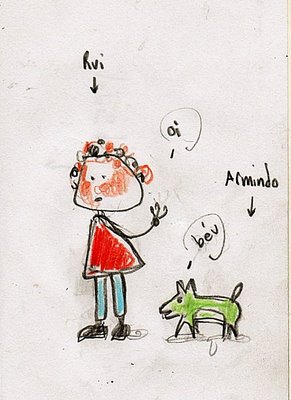 Rui
oi
Armindo
béu